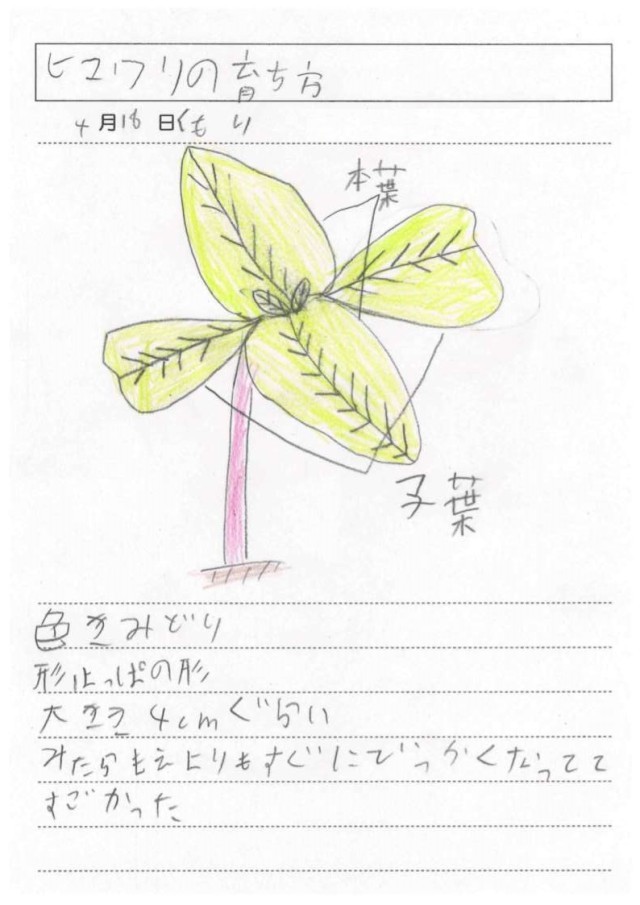 ヒマワリの育ち方
4月18日くもり
本葉
子葉
色きみどり
形はっぱの形
大きさ4cmぐらい
みたらもえよりもすぐにでっかくなってて
すごかった